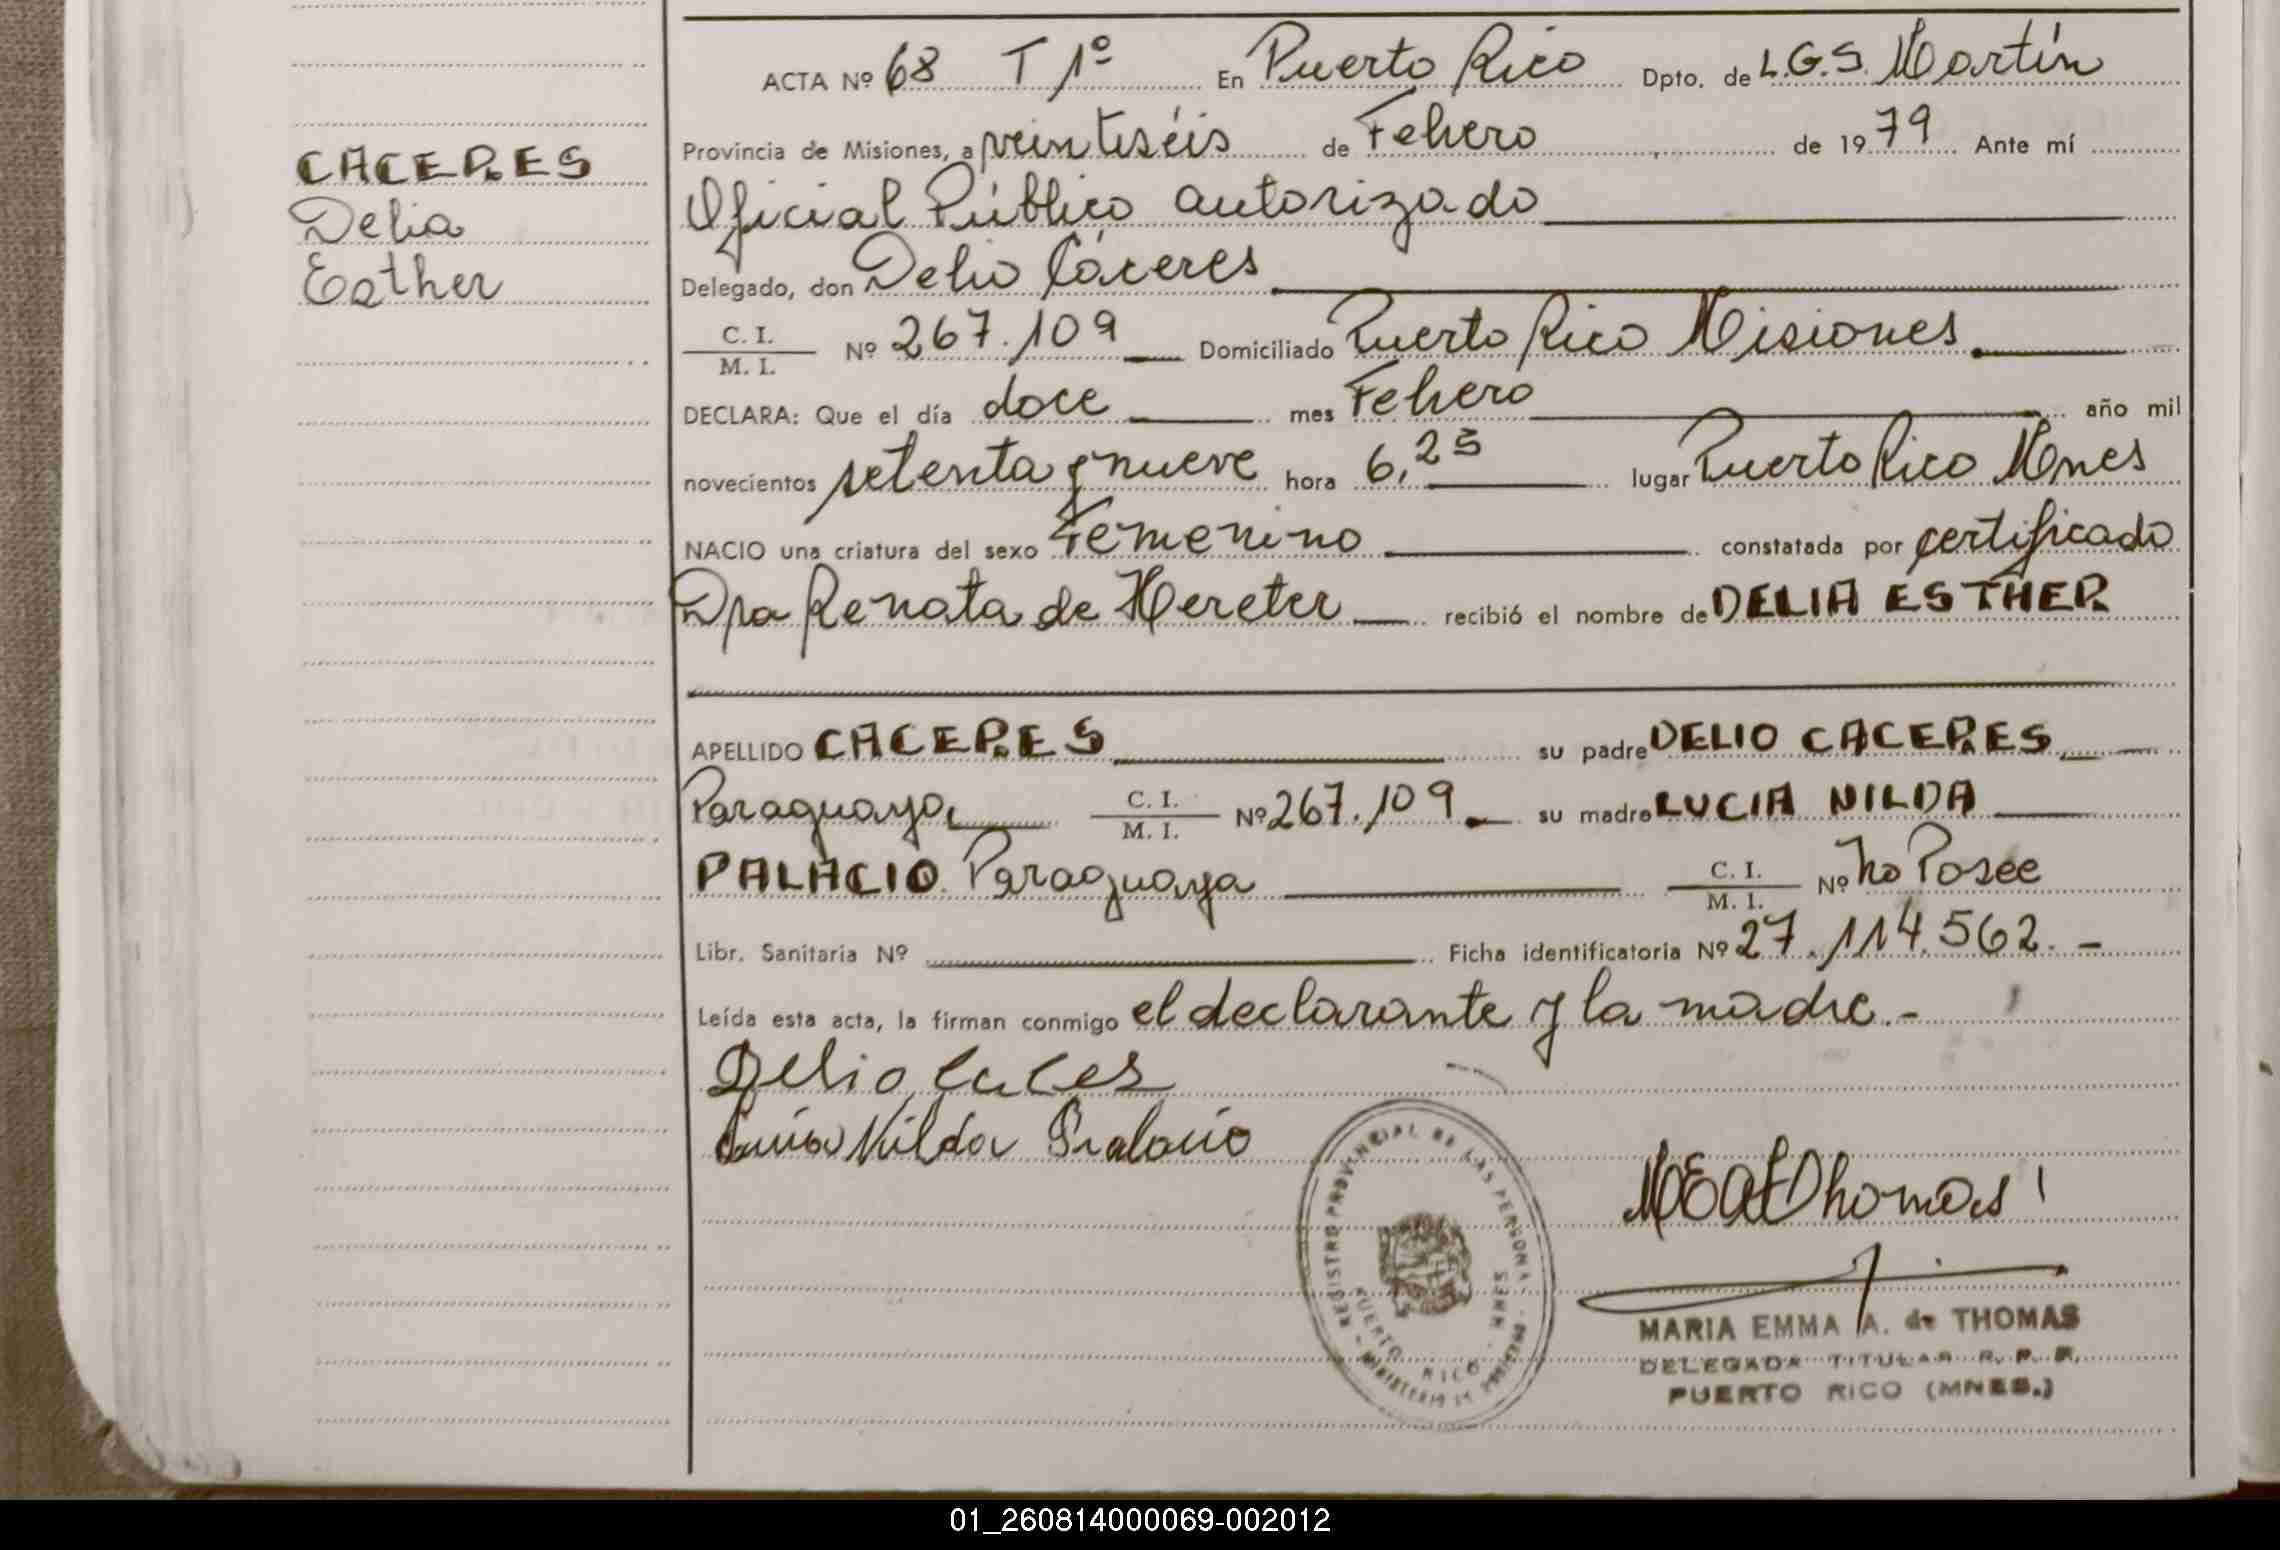 CACERES
Delia
Esther
ACTA Nº 68 T 1º En Puerto Rico Dpto. de L.G.S. Martín
Provincia de Misiones, a veintiséis de Febrero de 1979 Ante mí
Oficial Público autorizado
Delegado, don Delio Cáceres
C. I. / M. I. Nº 267.109 Domiciliado Puerto Rico Misiones
DECLARA: Que el día doce mes Febrero año mil
novecientos setenta y nueve hora 6,25 lugar Puerto Rico Mnes
NACIO una criatura del sexo Femenino constatada por certificado
Dra Renata de Hereter recibió el nombre de DELIA ESTHER
APELLIDO CACERES su padre DELIO CACERES
Paraguaya C. I. / M. I. Nº 267.109 su madre LUCIA NILDA
PALACIO Paraguaya C. I. / M. I. Nº No Posee
Libr. Sanitaria Nº Ficha identificatoria Nº 27.114.562.-
Leída esta acta, la firman conmigo el declarante y la madre.-
Delio
Nilda Palacio
REGISTRO PROVINCIAL DE LAS PERSONAS
PUERTO RICO - MNES
MEA Thomas
MARIA EMMA A. de THOMAS
DELEGADA TITULAR R. P. P.
PUERTO RICO (MNES.)
01_260814000069-002012